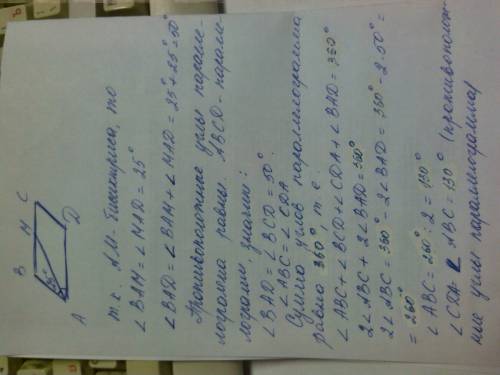 B M C
25°
A D
т.к. АМ-биссектриса, то
∠BAM = ∠MAD = 25°
∠BAD = ∠BAM + ∠MAD = 25° + 25° = 50°
Противоположные углы паралле-
лограмма равны. ABCD - паралле-
лограмм, значит:
∠BAD = ∠BCD = 50°
∠ABC = ∠CDA
Сумма углов параллелограмма
равна 360°, т.е.
∠ABC + ∠BCD + ∠CDA + ∠BAD = 360°
2∠ABC + 2∠BAD = 360°
2∠ABC = 360° - 2∠BAD = 360° - 2·50° =
= 260°
∠ABC = 260° : 2 = 130°
∠CDA = ∠ABC = 130° (противополож-
ные углы параллелограмма)